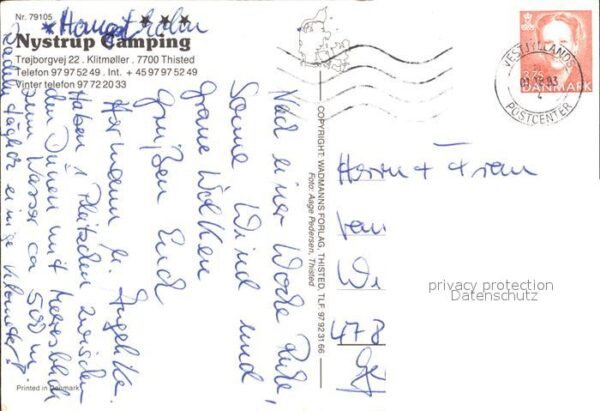 Nr. 79105
Nystrup Camping
Trøjborgvej 22 . Klitmøller . 7700 Thisted
Telefon 97 97 52 49 . Int. + 45 97 97 52 49
Vinter telefon 97 72 20 33
Nach einer Woche Ruhe,
Sonne Wind und
graue Wolken
grüßen Euch
Hermann u. Angelika.
Haben 1 Plätzchen zwischen
den Dünen mit Meeresblick
zum Wasser ca 500 m,
täglich einige Kilometer!
Printed in Denmark
COPYRIGHT: WADMANNS FORLAG, THISTED, TLF. 97 92 31 66
Foto: Aage Pedersen, Thisted
DANMARK
VESTJYLLANDS
POSTCENTER
Herrn + Frau
478
privacy protection
Datenschutz